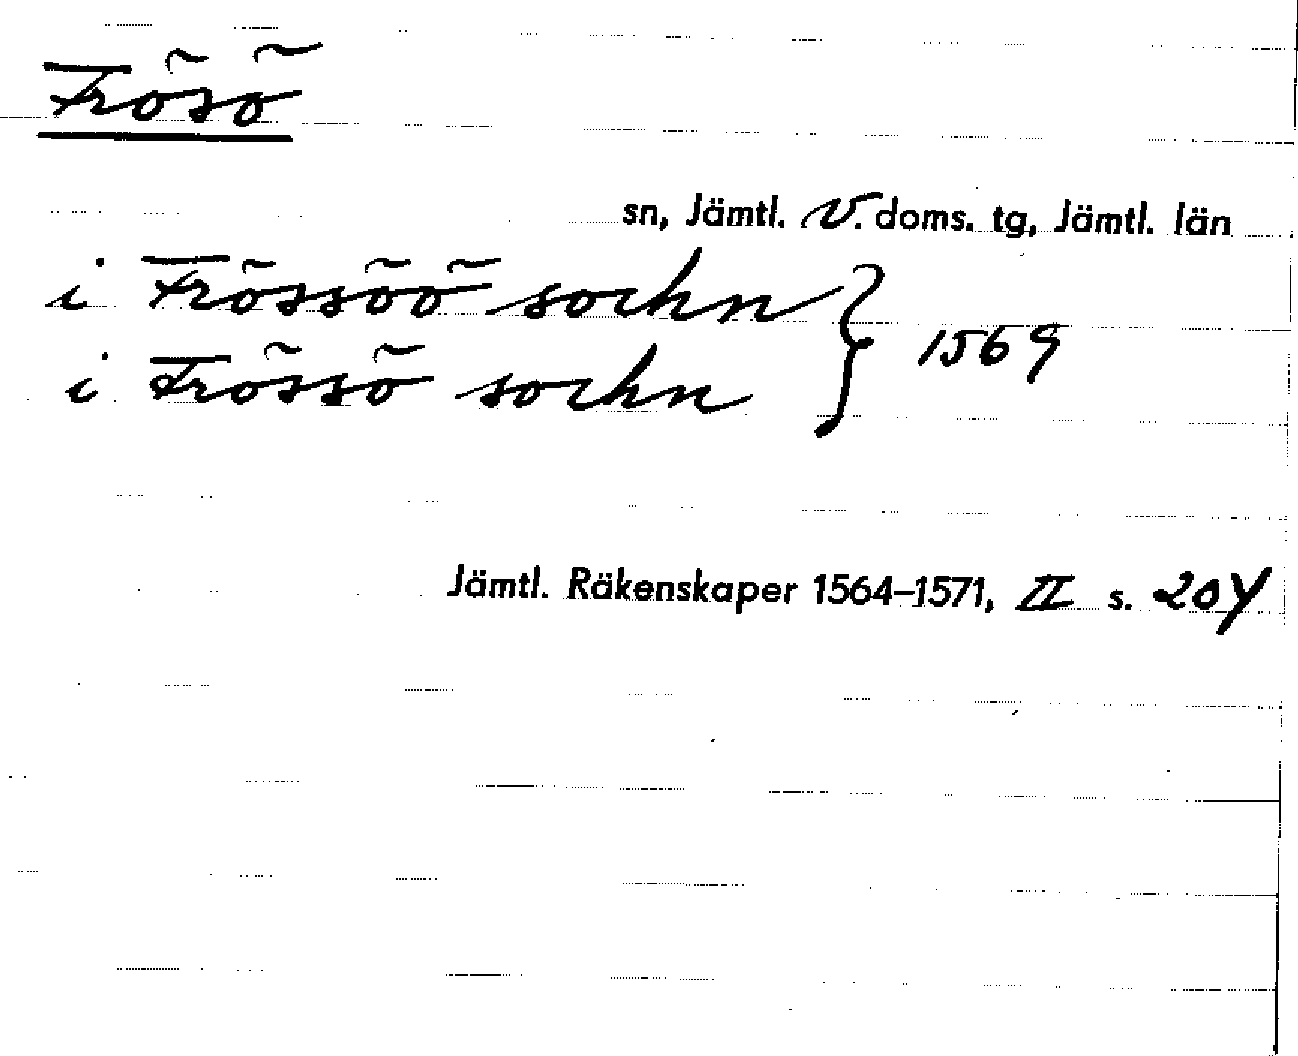 Frösö
sn, Jämtl. V. doms. tg, Jämtl. län
i Frössöö sochn
i Frössö sochn } 1569
Jämtl. Räkenskaper 1564–1571, II s. 204